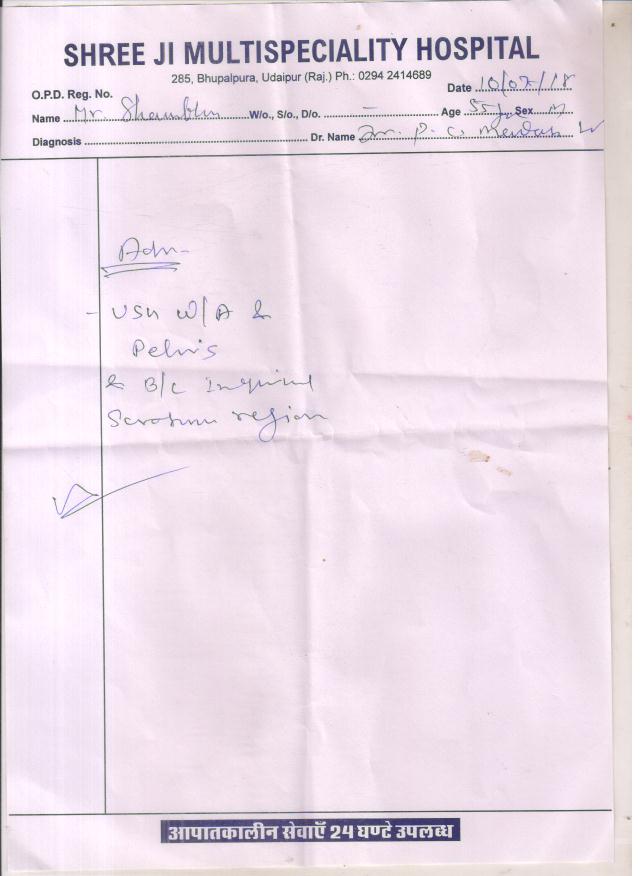 SHREE JI MULTISPECIALITY HOSPITAL
285, Bhupalpura, Udaipur (Raj.) Ph.: 0294 2414689
O.P.D. Reg. No. Date 10/07/18
Name Mr. Shambhu W/o., S/o., D/o. – Age 55 y Sex M
Diagnosis Dr. Name Dr. P. C.
Adv-
- USG W/A &
Pelvis
& B/L Inguinal
Scrotum region
आपातकालीन सेवाएँ 24 घण्टे उपलब्ध